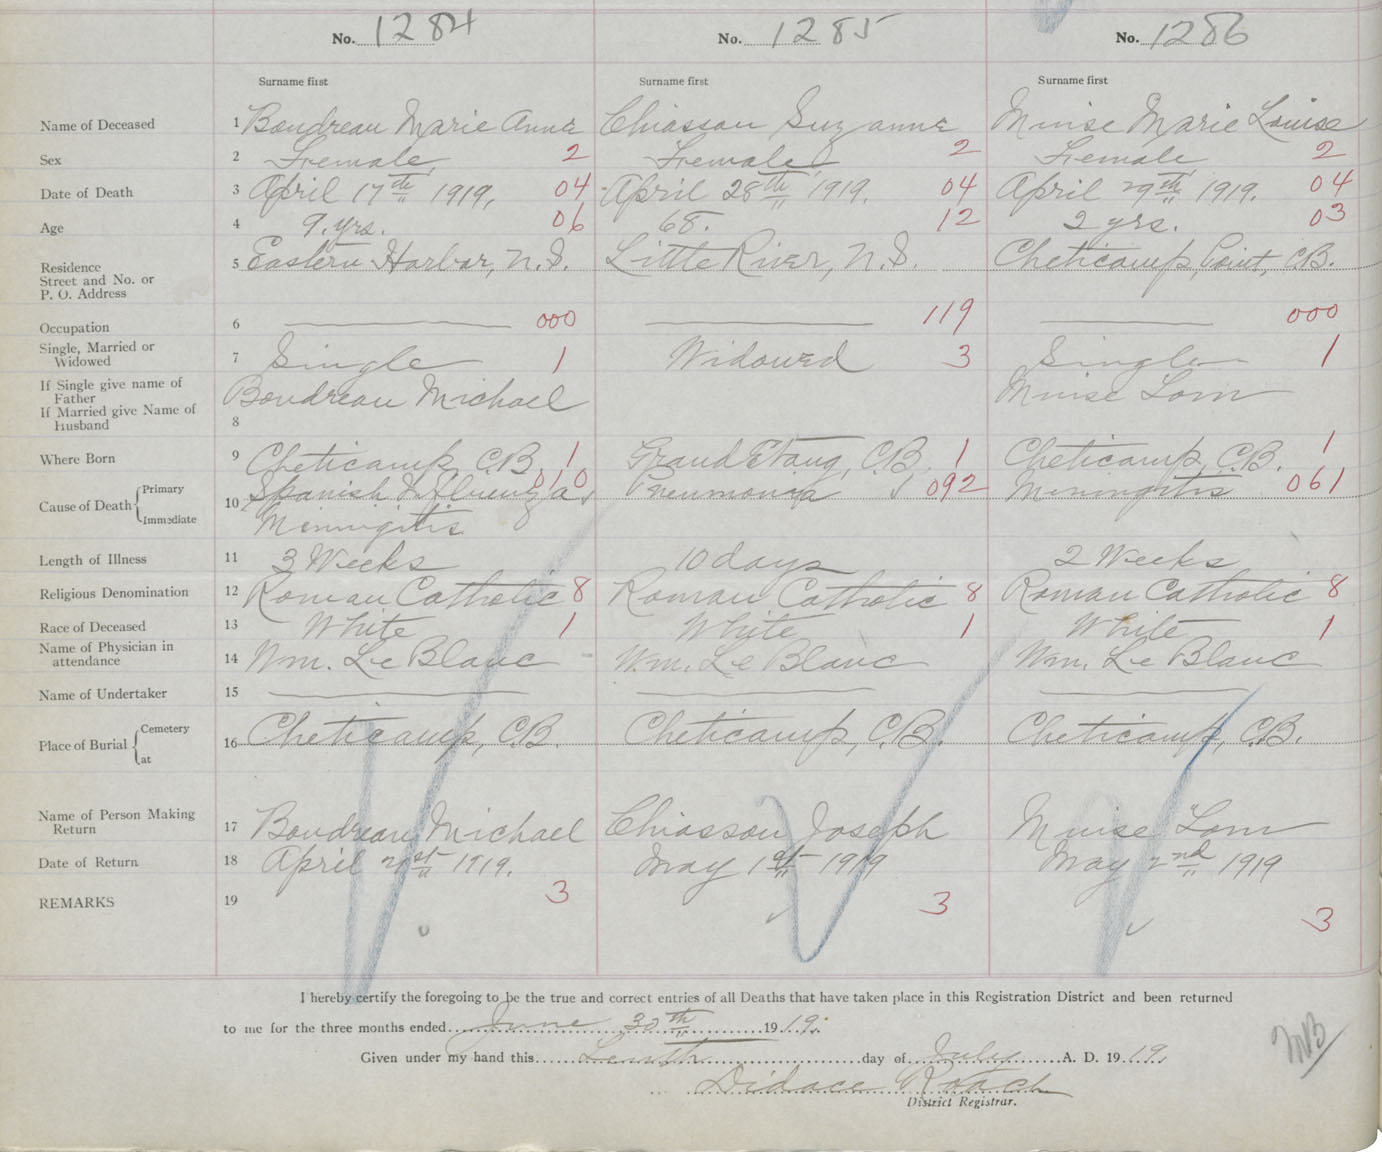 No. 1284 No. 1285 No. 1286
Surname first Surname first Surname first
Name of Deceased 1 Boudreau Marie Anne Chiasson Suzanne Muise Marie Louise
Sex 2 Female 2 Female 2 Female 2
Date of Death 3 April 17th, 1919. 04 April 28th, 1919. 04 April 29th, 1919. 04
Age 4 9. yrs. 06 68. 12 2 yrs. 03
Residence
Street and No. or
P. O. Address 5 Eastern Harbor, N.S. Little River, N.S. Cheticamp, Point, C.B.
Occupation 6 000 119 000
Single, Married or
Widowed 7 Single 1 Widowed 3 Single 1
If Single give name of
Father Boudreau Michael Muise
If Married give Name of
Husband 8
Where Born 9 Cheticamp, C.B. 1 Grand Etang, C.B. 1 Cheticamp, C.B. 1
Cause of Death Primary 10 Spanish Influenza 010 Pneumonia 092 Meningitis 061
Immediate Meningitis
Length of Illness 11 3 Weeks 10 days 2 Weeks
Religious Denomination 12 Roman Catholic 8 Roman Catholic 8 Roman Catholic 8
Race of Deceased 13 White 1 White 1 White 1
Name of Physician in
attendance 14 Wm. Le Blanc Wm. Le Blanc Wm. Le Blanc
Name of Undertaker 15
Place of Burial Cemetery
at 16 Cheticamp, C.B. Cheticamp, C.B. Cheticamp, C.B.
Name of Person Making
Return 17 Boudreau Michael Chiasson Joseph Muise
Date of Return 18 April 21st 1919. May 1st 1919 May 2nd 1919
REMARKS 19 3 3 3
I hereby certify the foregoing to be the true and correct entries of all Deaths that have taken place in this Registration District and been returned
to me for the three months ended June 30th 1919.
Given under my hand this Tenth day of July A. D. 1919.
Didace Roach
District Registrar.